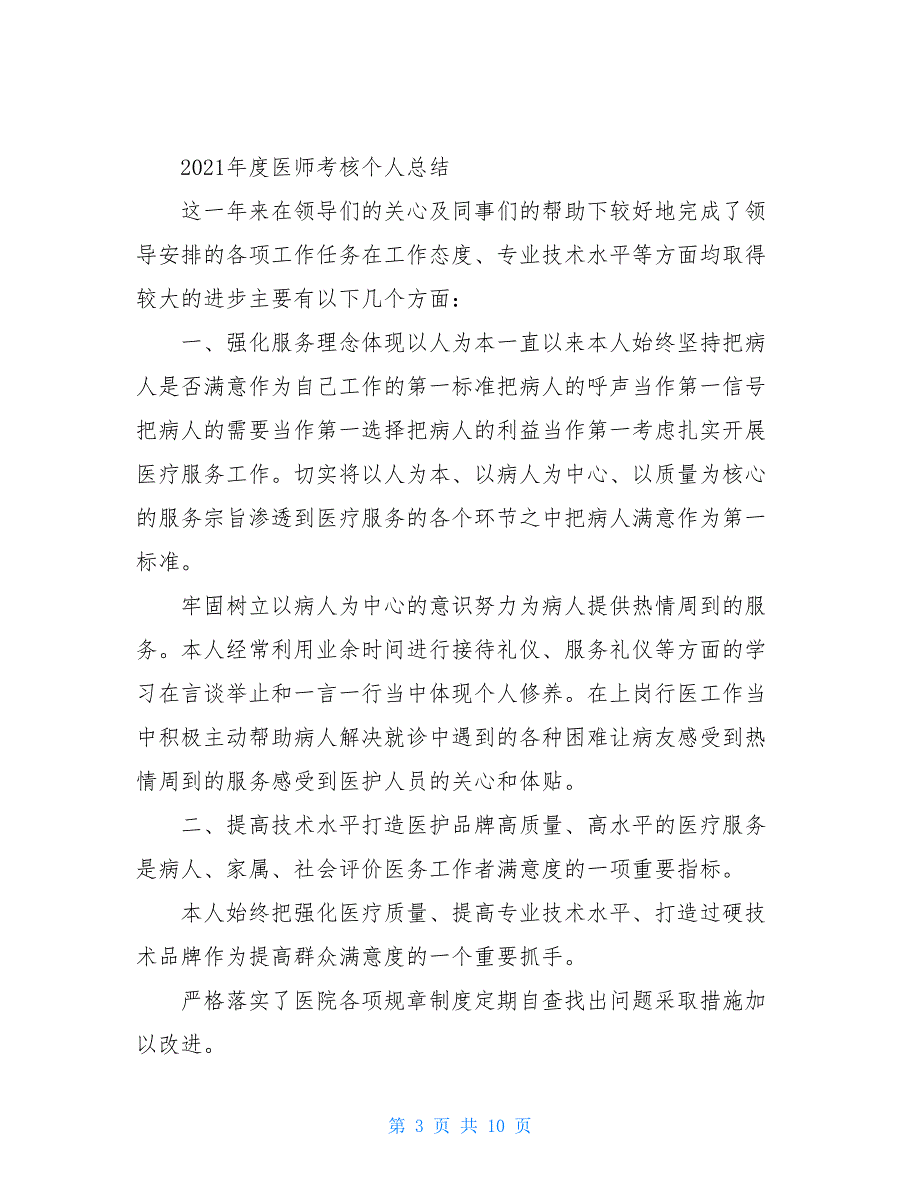 2021年度医师考核个人总结
这一年来在领导们的关心及同事们的帮助下较好地完成了领
导安排的各项工作任务在工作态度、专业技术水平等方面均取得
较大的进步主要有以下几个方面：
一、强化服务理念体现以人为本一直以来本人始终坚持把病
人是否满意作为自己工作的第一标准把病人的呼声当作第一信号
把病人的需要当作第一选择把病人的利益当作第一考虑扎实开展
医疗服务工作。切实将以人为本、以病人为中心、以质量为核心
的服务宗旨渗透到医疗服务的各个环节之中把病人满意作为第一
标准。
牢固树立以病人为中心的意识努力为病人提供热情周到的服
务。本人经常利用业余时间进行接待礼仪、服务礼仪等方面的学
习在言谈举止和一言一行当中体现个人修养。在上岗行医工作当
中积极主动帮助病人解决就诊中遇到的各种困难让病友感受到热
情周到的服务感受到医护人员的关心和体贴。
二、提高技术水平打造医护品牌高质量、高水平的医疗服务
是病人、家属、社会评价医务工作者满意度的一项重要指标。
本人始终把强化医疗质量、提高专业技术水平、打造过硬技
术品牌作为提高群众满意度的一个重要抓手。
严格落实了医院各项规章制度定期自查找出问题采取措施加
以改进。
第 3 页 共 10 页